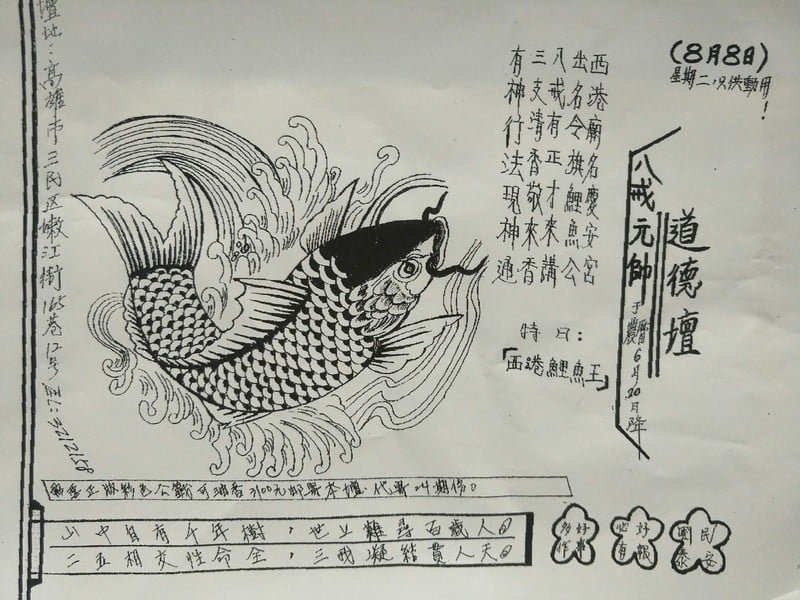 (8月8日)
星期二,只供動用!
道德壇
八戒元帥于農曆6月20日降
西港廟名慶安宮
出名令旗鯉魚公
八戒有正才來講
三支清香敬來香
有神行法現神通
特曰:
「西港鯉魚王」
壇址:高雄市三民区嫩江街165巷12号 3212158
正版彩色公籤可油香300元郵寄本壇.代寄
山中自有千年樹,世上難尋百歲人
二五相交性命全,三戒凝結貫人天
好事多作
好報必有
國泰民安